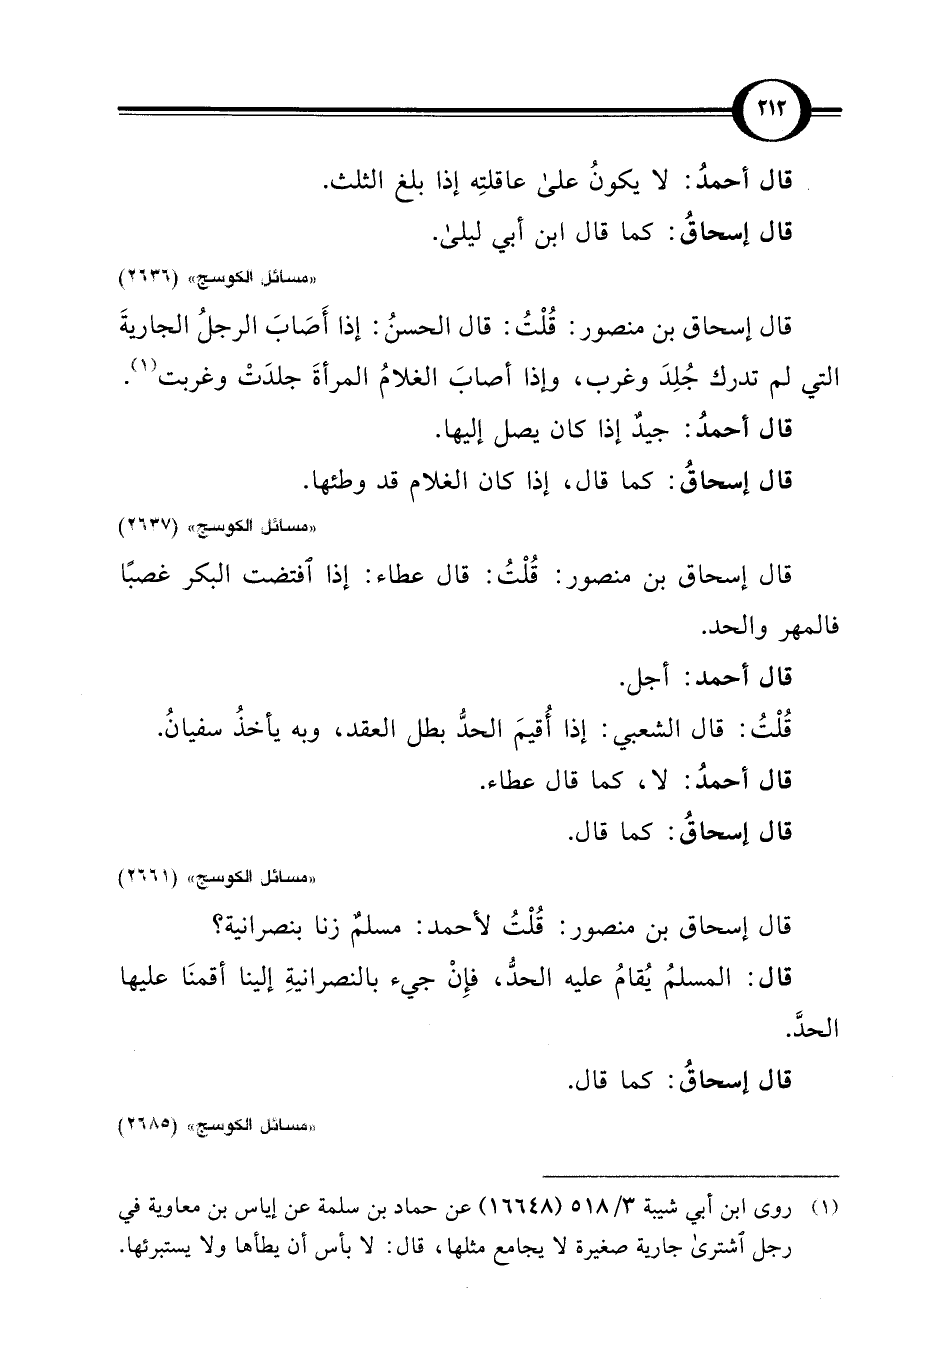 ٢١٢
قال أحمدُ: لا يكونُ علىٰ عاقلتِه إذا بلغ الثلث.
قال إسحاقُ: كما قال ابن أبي ليلىٰ.
«مسائل الكوسج» (٢٦٣٦)
قال إسحاق بن منصور: قُلْتُ: قال الحسنُ: إذا أَصَابَ الرجلُ الجاريةَ
التي لم تدرك جُلِدَ وغرب، وإذا أصابَ الغلامُ المرأةَ جلدَتْ وغربت(١).
قال أحمدُ: جيدٌ إذا كان يصل إليها.
قال إسحاقُ: كما قال، إذا كان الغلام قد وطئها.
«مسائل الكوسج» (٢٦٣٧)
قال إسحاق بن منصور: قُلْتُ: قال عطاء: إذا ٱفتضت البكر غصبًا
فالمهر والحد.
قال أحمد: أجل.
قُلْتُ: قال الشعبي: إذا أُقيمَ الحدُّ بطل العقد، وبه يأخذُ سفيانُ.
قال أحمدُ: لا، كما قال عطاء.
قال إسحاقُ: كما قال.
«مسائل الكوسج» (٢٦٦١)
قال إسحاق بن منصور: قُلْتُ لأحمد: مسلمٌ زنا بنصرانية؟
قال: المسلمُ يُقامُ عليه الحدُّ، فإِنْ جيء بالنصرانيةِ إلينا أقمنَا عليها
الحدَّ.
قال إسحاقُ: كما قال.
«مسائل الكوسج» (٢٦٨٥)
(١) روى ابن أبي شيبة ٥١٨/٣ (١٦٦٤٨) عن حماد بن سلمة عن إياس بن معاوية في
رجل ٱشترىٰ جارية صغيرة لا يجامع مثلها، قال: لا بأس أن يطأها ولا يستبرئها.